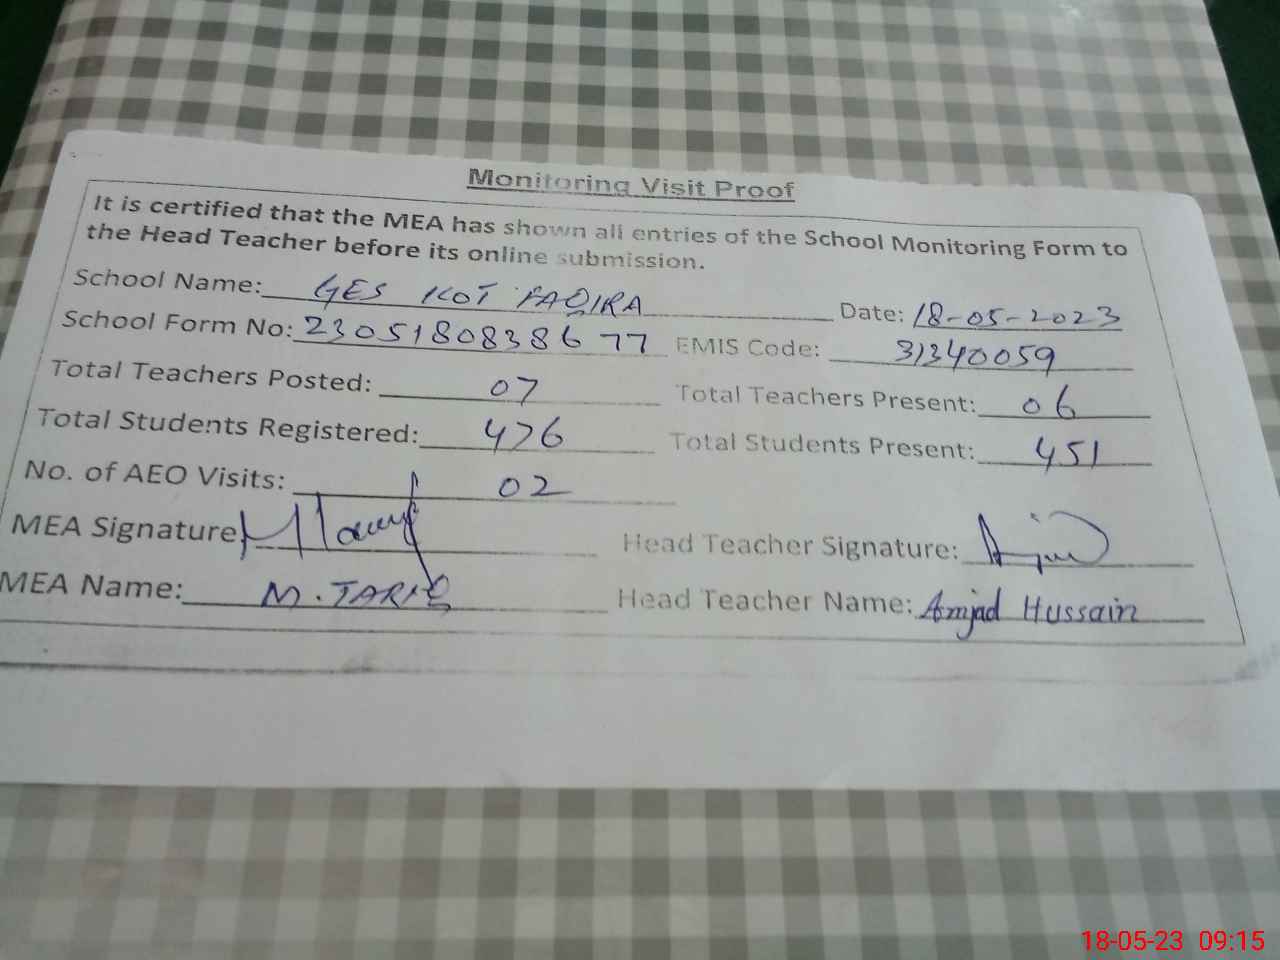 Monitoring Visit Proof
It is certified that the MEA has shown all entries of the School Monitoring Form to
the Head Teacher before its online submission.
School Name: GES KOT FAQIRA Date: 18-05-2023
School Form No: 2305180838677 EMIS Code: 31340059
Total Teachers Posted: 07 Total Teachers Present: 06
Total Students Registered: 476 Total Students Present: 451
No. of AEO Visits: 02
MEA Signature: Head Teacher Signature:
MEA Name: M. TARIQ Head Teacher Name: Amjad Hussain
18-05-23 09:15